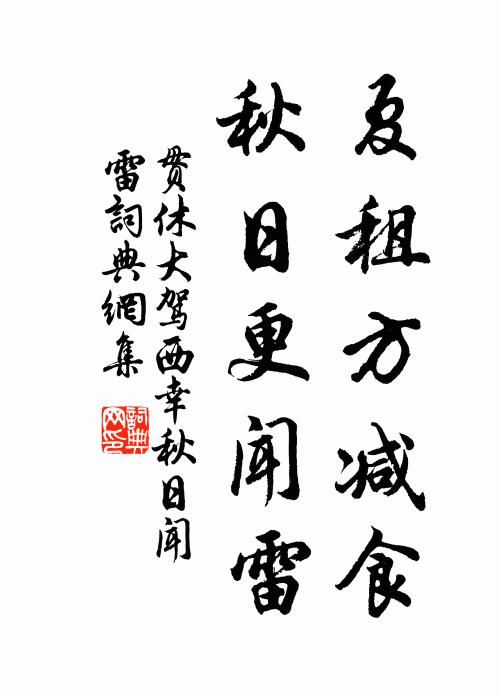 夏租方减食
秋日更闻雷
贯休大驾西幸秋日闻
雷词典網集
詞典
网印